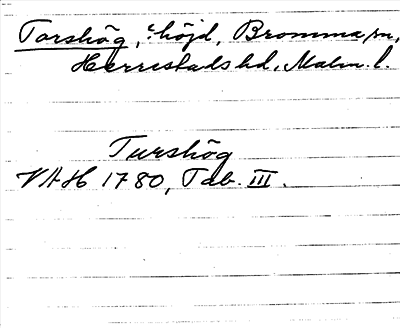 Torshög, : höjd, Bromma sn,
Herrestads hd, Malm. l.
Turshög
VAH 1780, Tab. III.